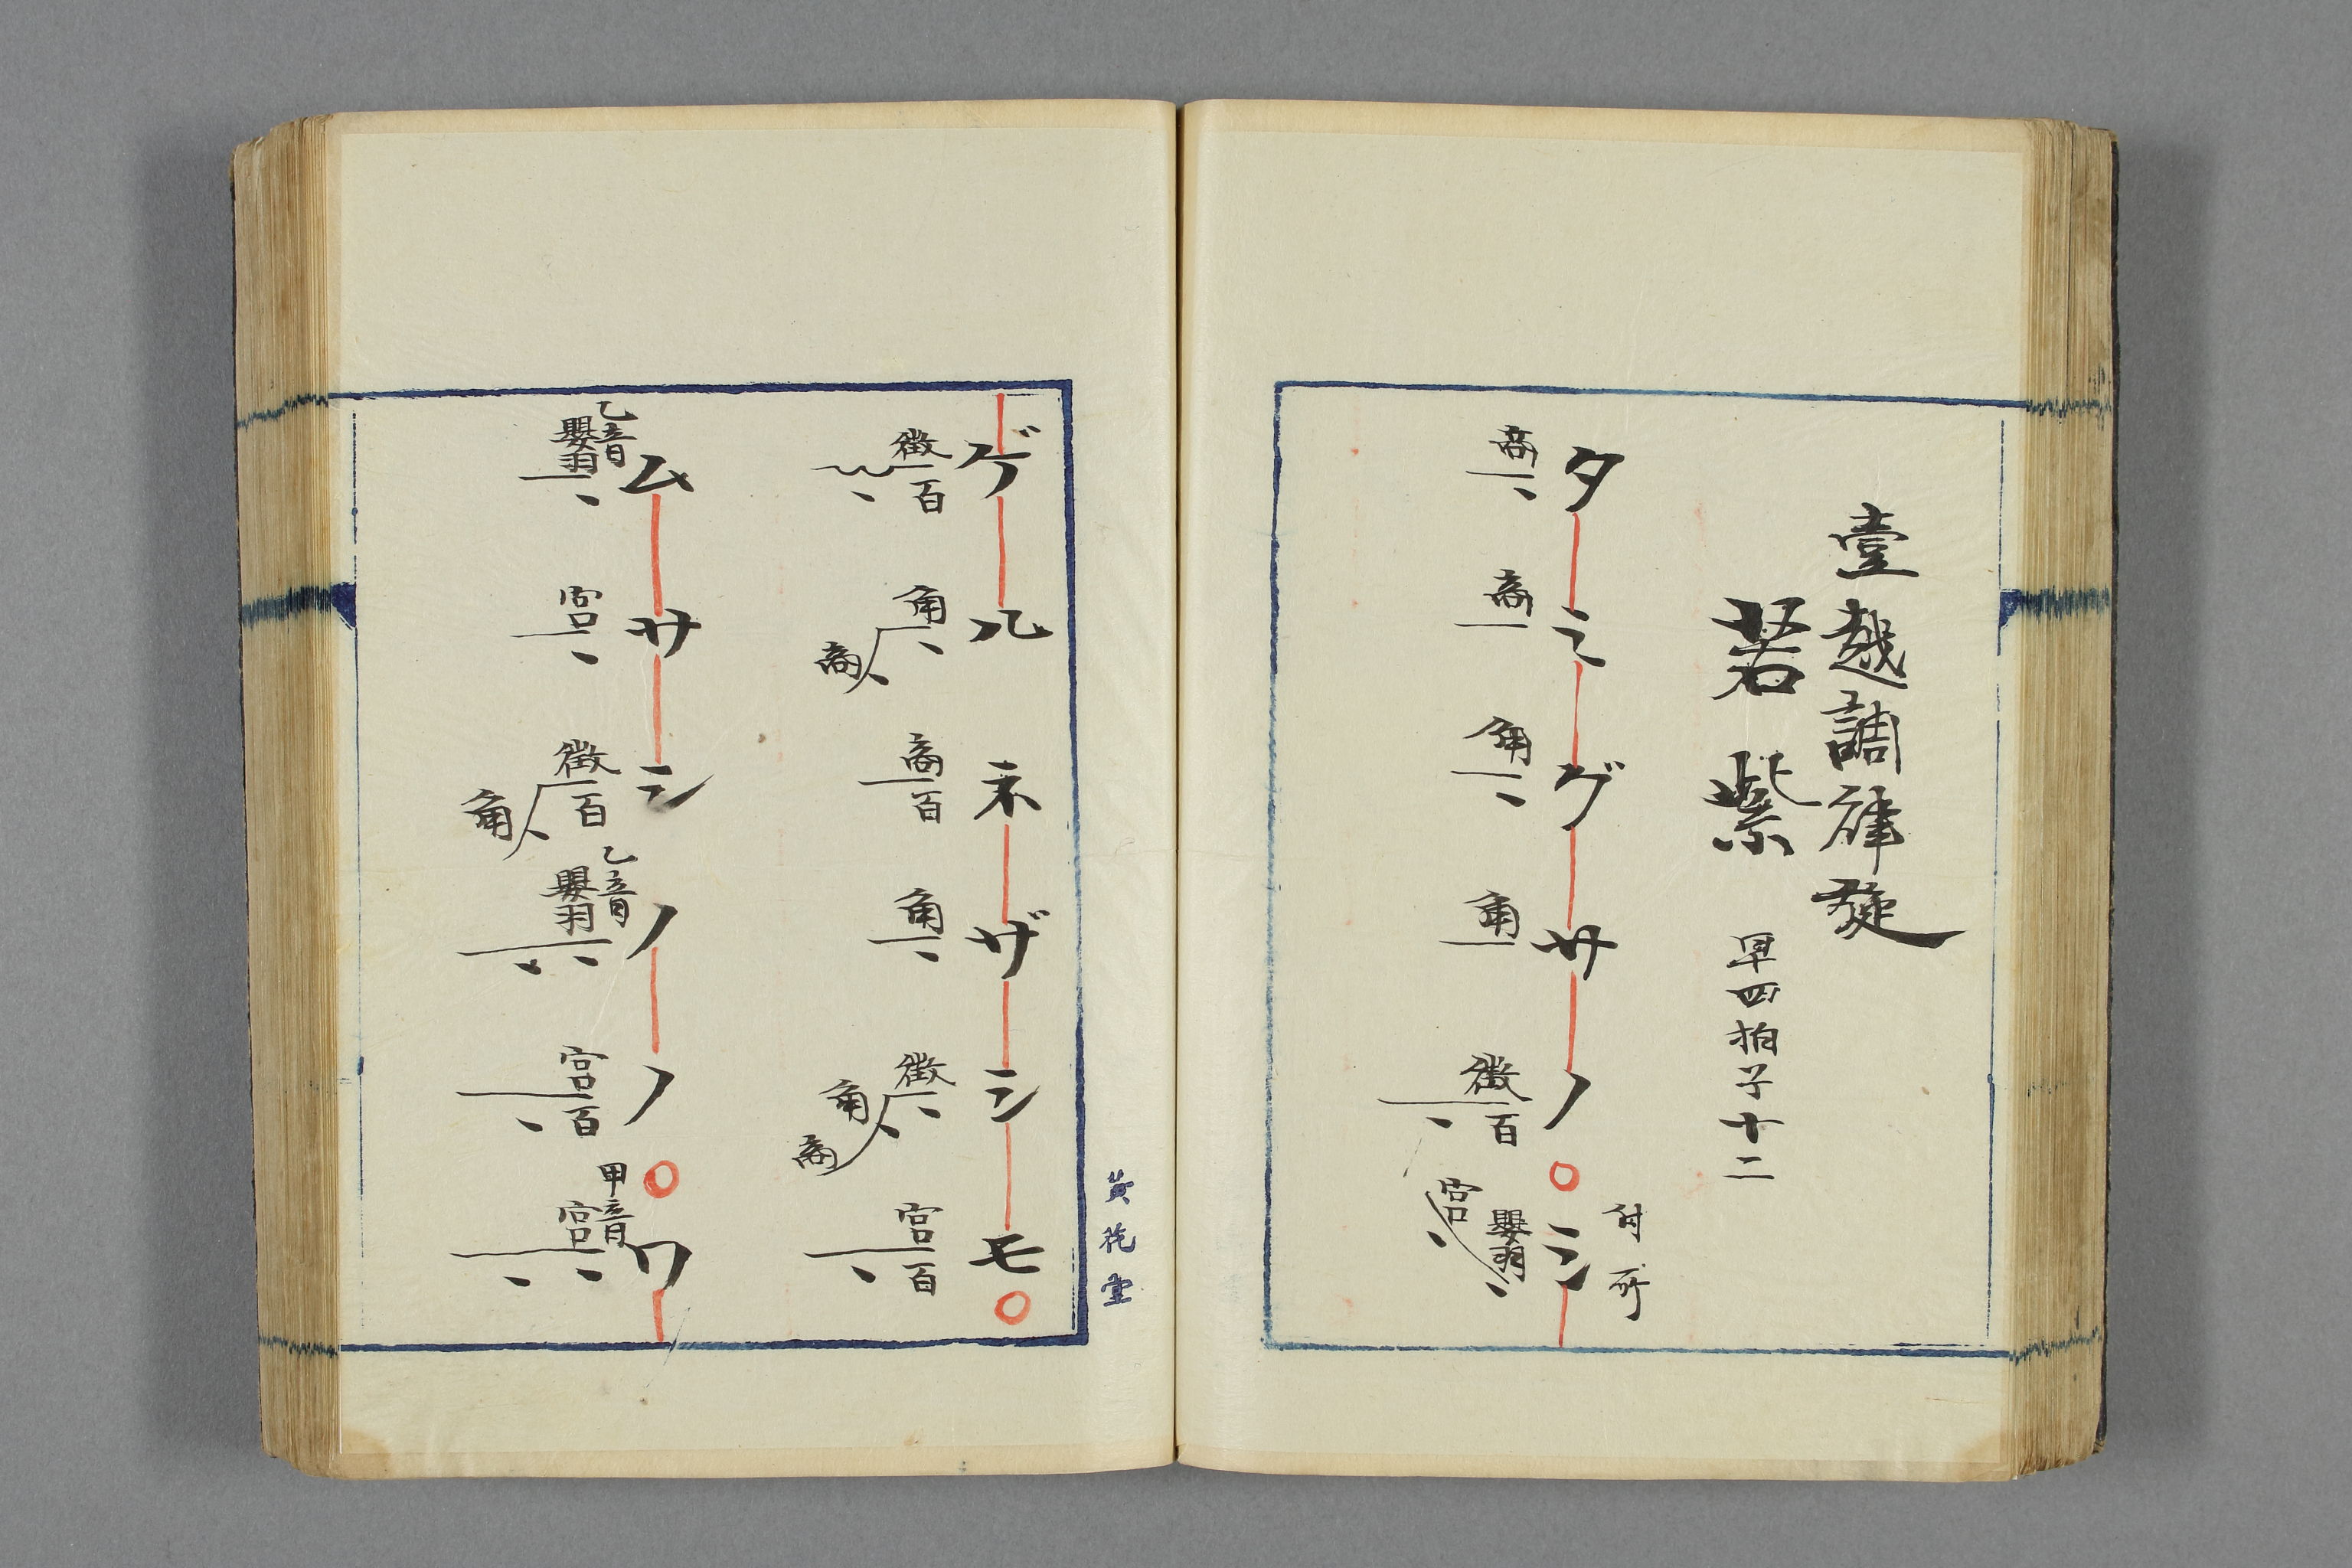 壹越調律旋
若紫 早四拍子十二
タミグサノ〇シ
付所
商商角角徴百嬰羽宮
黄花堂
ゲルネザシモ〇
徴百角商商百角徴角商宮百
ムサシノノ〇ワ
乙音嬰羽宮徴百角乙音嬰羽宮百甲音宮